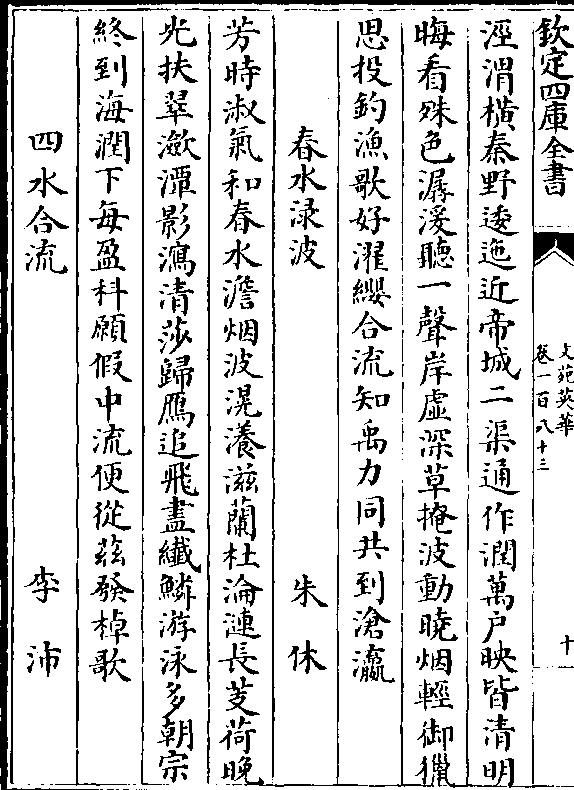 欽定四庫全書
文苑英華
卷一百八十三
十
涇渭橫秦野逶迤近帝城二渠通作潤萬戶映皆清明
晦看殊色潺湲聽一聲岸虛深草掩波動曉烟輕御獵
思投釣漁歌好濯纓合流知禹力同共到滄瀛
春水渌波 朱休
芳時淑氣和春水澹烟波滉瀁滋蘭杜淪漣長芰荷晚
光扶翠潋潭影瀉清莎歸鴈追飛盡纖鱗游泳多朝宗
終到海潤下每盈科願假中流便從兹發棹歌
四水合流 李沛